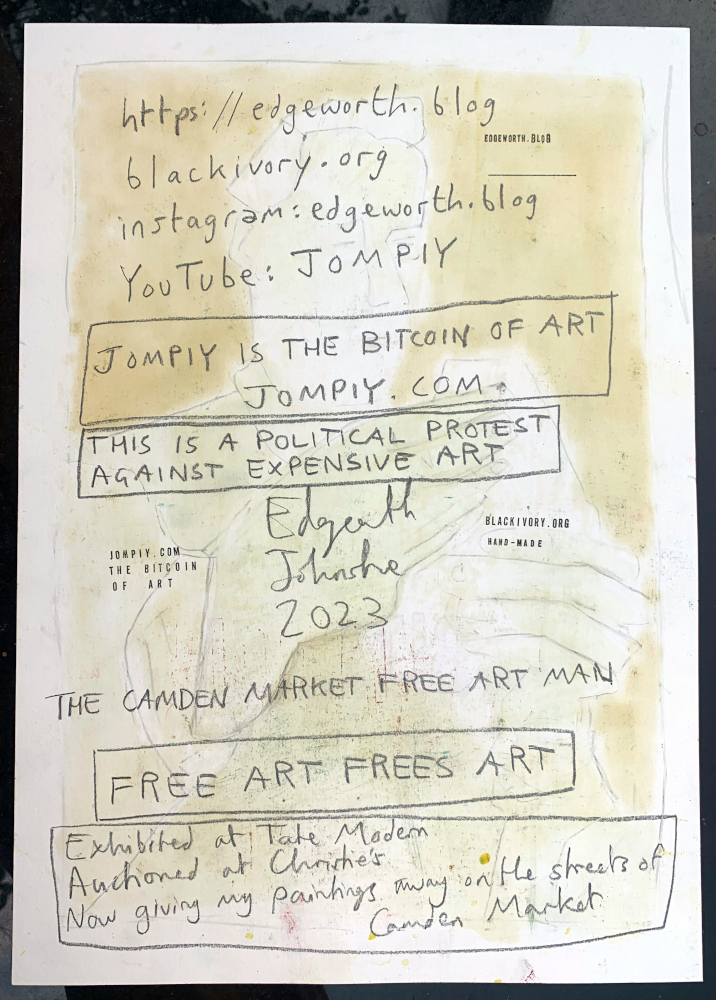 https://edgeworth.blog
EDGEWORTH.BLOB
blackivory.org
instagram:edgeworth.blog
YouTube: JOMPIY
JOMPIY IS THE BITCOIN OF ART
JOMPIY.COM.
THIS IS A POLITICAL PROTEST
AGAINST EXPENSIVE ART
Johnstone
2023
BLACKIVORY.ORG
HAND-MADE
JOMPIY.COM
THE BITCOIN
OF ART
THE CAMDEN MARKET FREE ART MAN
FREE ART FREES ART
Exhibited at Tate Modern
Auctioned at Christie's
Now giving my paintings away on the streets of
Camden Market